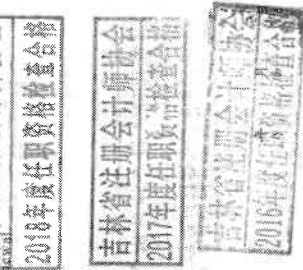 2018年度任职资格检查合格
吉林省注册会计师协会
2017年度任职资格检查合格
吉林省注册会计师协会
2016年度任职资格检查合格